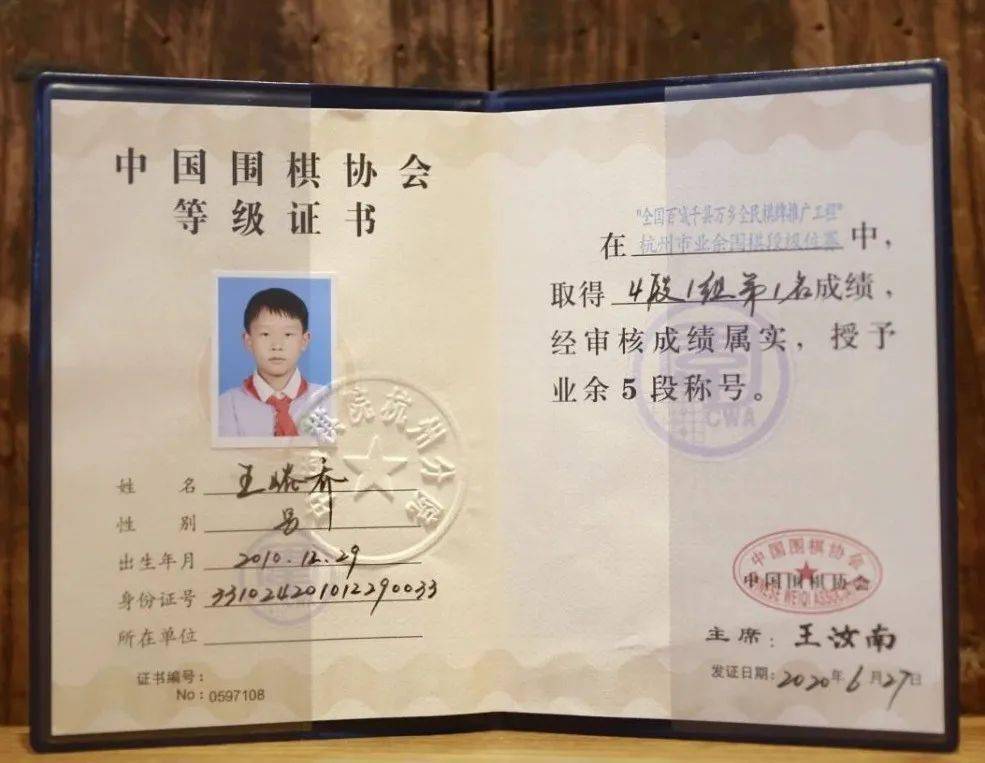 中国围棋协会
等级证书
姓 名 王
性 别 男
出生年月 2010.12.29
身份证号 331024201012290033
所在单位
证书编号:
No:0597108
棋院杭州分院
"全国百城千县万乡全民棋牌推广工程"
在 杭州市业余围棋段级位赛 中,
取得 4段1组第1名成绩,
经审核成绩属实,授予
业余5段称号。
CWA
中国围棋协会
中国围棋协会
CHINESE WEIQI ASSOCIATION
主席:王汝南
发证日期:2020年6月27日